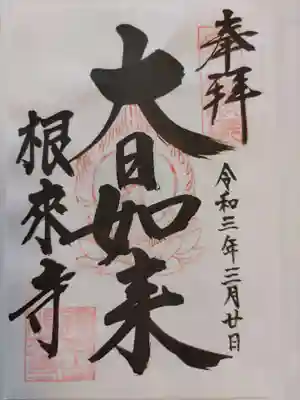 奉拜
令和三年三月廿日
大日如来
根來寺